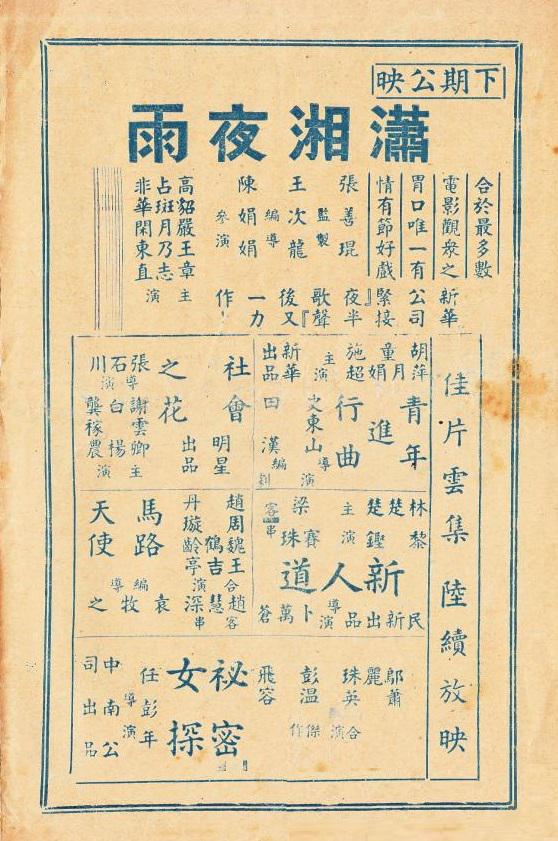 下期公映
瀟湘夜雨
合於最多數
電影觀衆之
胃口唯一有
情有節好戲
新華
公司
緊接
『夜半
歌聲』
後又
一力
作!
張善琨
監製
王次龍
編導
陳娟娟
參演
高貂嚴王章
占斑月乃志
非華閑東直
主演
佳片雲集 陸續放映
青年
進
行曲
胡萍
童月娟
施超
主演
史東山
導演
新華
出品
田漢
編劇
社會
之花
明星
出品
張石川
導演
謝雲卿
白楊
龔稼農
主演
新人道
林楚楚
黎鏗
主演
梁賽珠
客串
民新出品
卜萬蒼
導演
馬路
天使
趙丹
周璇
魏鶴齡
王吉亭
合演
趙慧深
客串
袁牧之
編導
祕密
女探
鄔麗珠
蕭英
彭飛
溫容
合演傑作
任彭年
導演
中南公
司出品